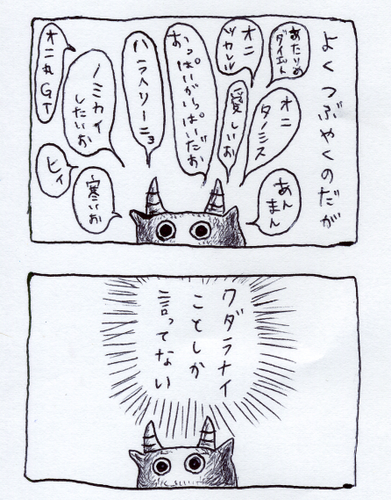 よくつぶやくのだが
あたりめ
オニ
オニ
タノミス
あん
まん
愛しいお
おっぱいがいっぱいだお
ハラヘリーニョ
ノミカイ
したいお
オニ丸GT
ヒィ
寒いお
クダラナイ
ことしか
言ってない